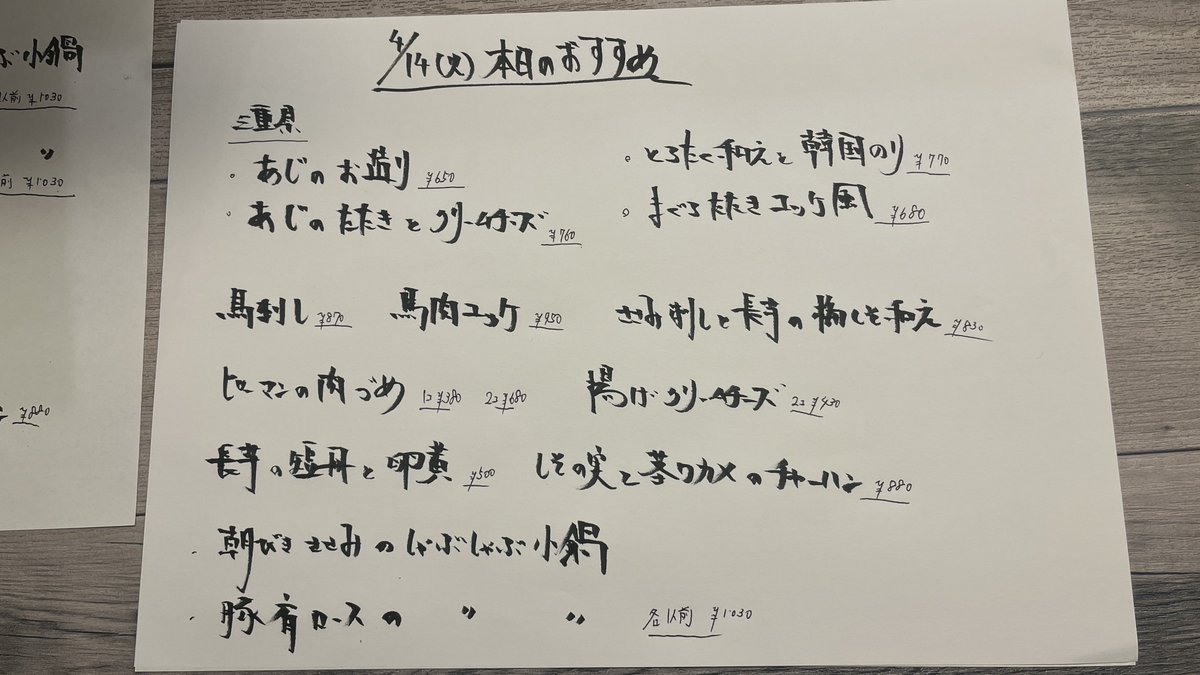 ぶ小鍋
人前 ¥1030
〃
前 ¥1030
¥880
4/14(火) 本日のおすすめ
三重県
。あじのお造り ¥650
。あじのたたきとクリームチーズ ¥760
。とろたく和えと韓国のり ¥770
。まぐろたたきユッケ風 ¥680
馬刺し ¥870 馬肉ユッケ ¥950 ささみ刺しと長芋の梅しそ和え ¥830
ピーマンの肉づめ 1コ ¥380 2コ ¥680 揚げクリームチーズ 2コ ¥430
長芋の短冊と卵黄 ¥500 しその実と茎ワカメのチャーハン ¥880
・朝びきささみのしゃぶしゃぶ小鍋
・豚肩ロースの 〃 〃 各1人前 ¥1030